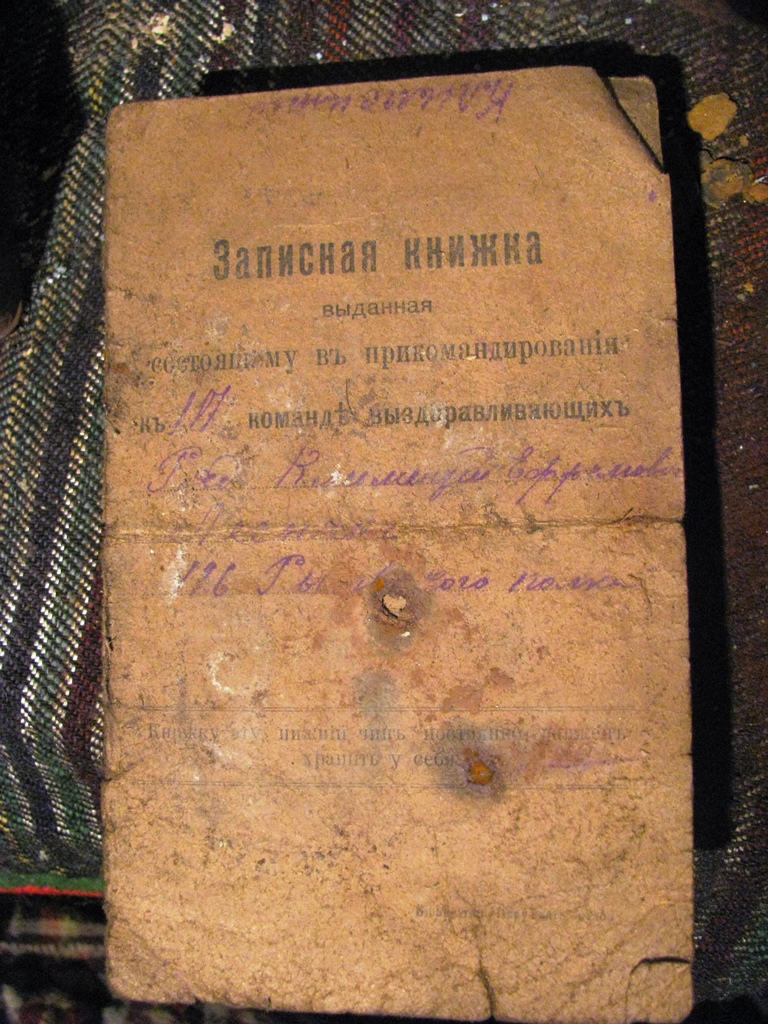 Записная книжка
выданная
состоящему въ прикомандированіи
къ 117 командѣ выздоравливающихъ
Ряд. Климентій Ефремовъ
126 Рыльского полка
Книжку эту нижній чинъ постоянно долженъ
хранить у себя